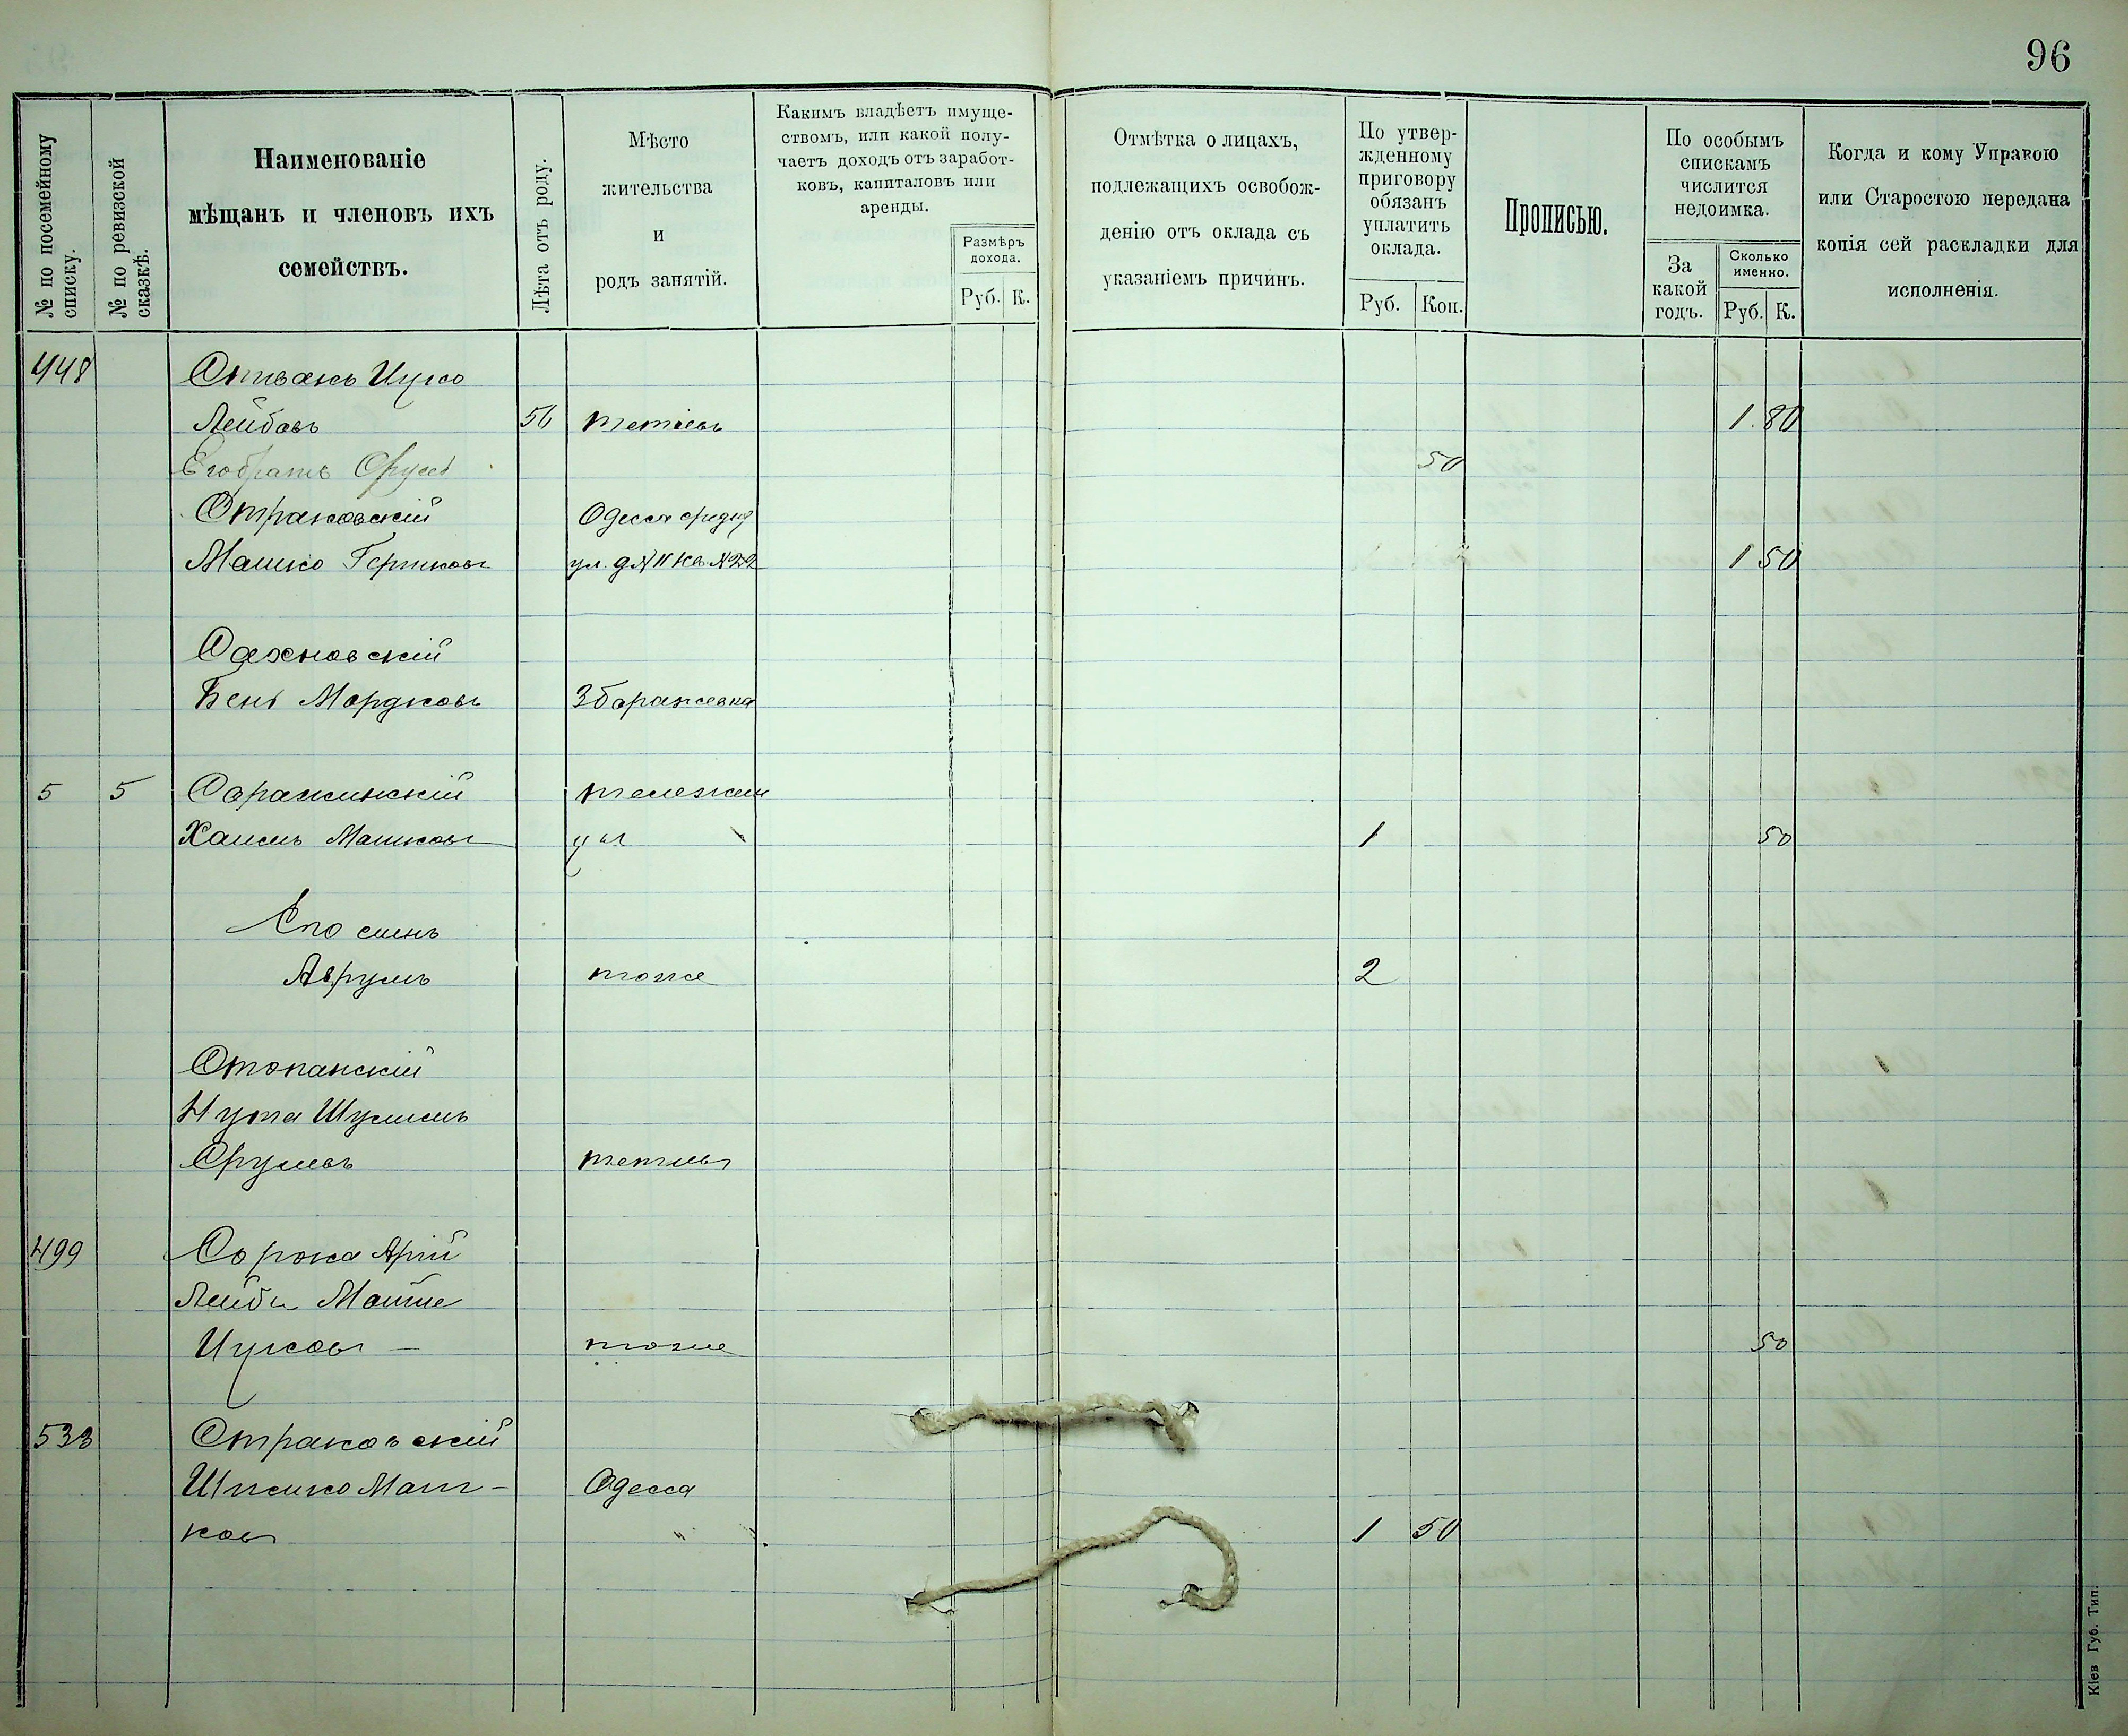 96
№ по посемейному списку.
№ по ревизской сказкѣ.
Наименованіе
мѣщанъ и членовъ ихъ
семействъ.
Лѣта отъ роду.
Мѣсто
жительства
и
родъ занятій.
Какимъ владѣетъ имуще-
ствомъ, или какой полу-
чаетъ доходъ отъ заработ-
ковъ, капиталовъ или
аренды.
Размѣръ
дохода.
Руб. К.
Отмѣтка о лицахъ,
подлежащихъ освобож-
денію отъ оклада съ
указаніемъ причинъ.
По утвер-
жденному
приговору
обязанъ
уплатить
оклада.
Руб. Коп.
Прописью.
По особымъ
спискамъ
числится
недоимка.
За
какой
годъ.
Сколько
именно.
Руб. К.
Когда и кому Управою
или Старостою передана
копія сей раскладки для
исполненія.
448 Ицко
Лейбовъ 56 тетіевъ 1.80
Его братъ Сруль 50
Страковскій Одесса
Машко Гершковъ ул. д № 11 кв. № 22 1 50
Сахновскій
Бень Мордковъ Збаражевка
5 5 тележин
Хаимъ Машковъ 1 50
Его сынъ
Аврумъ тоже 2
Стопанскій
Нута Шулимъ
Срулевъ тетіевъ
499 Сорока Арій
Лейби Мотте
Ицковъ — тоже 50
533 Страковскій
Ицико Маш- Одесса
ковъ " " 1 50
Кіев Губ. Тип.